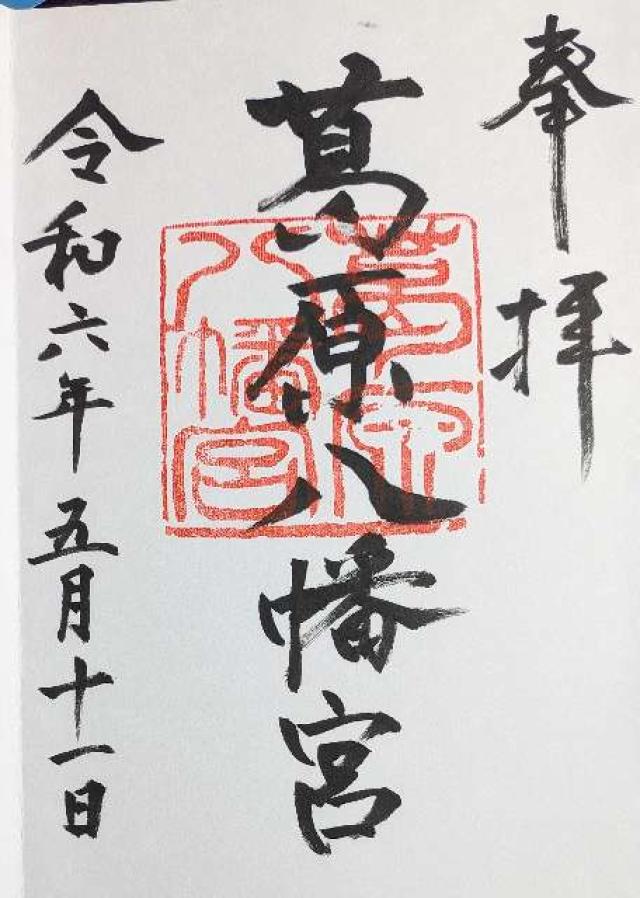 奉拝
葛原八幡宮
葛原八幡宮
令和六年五月十一日